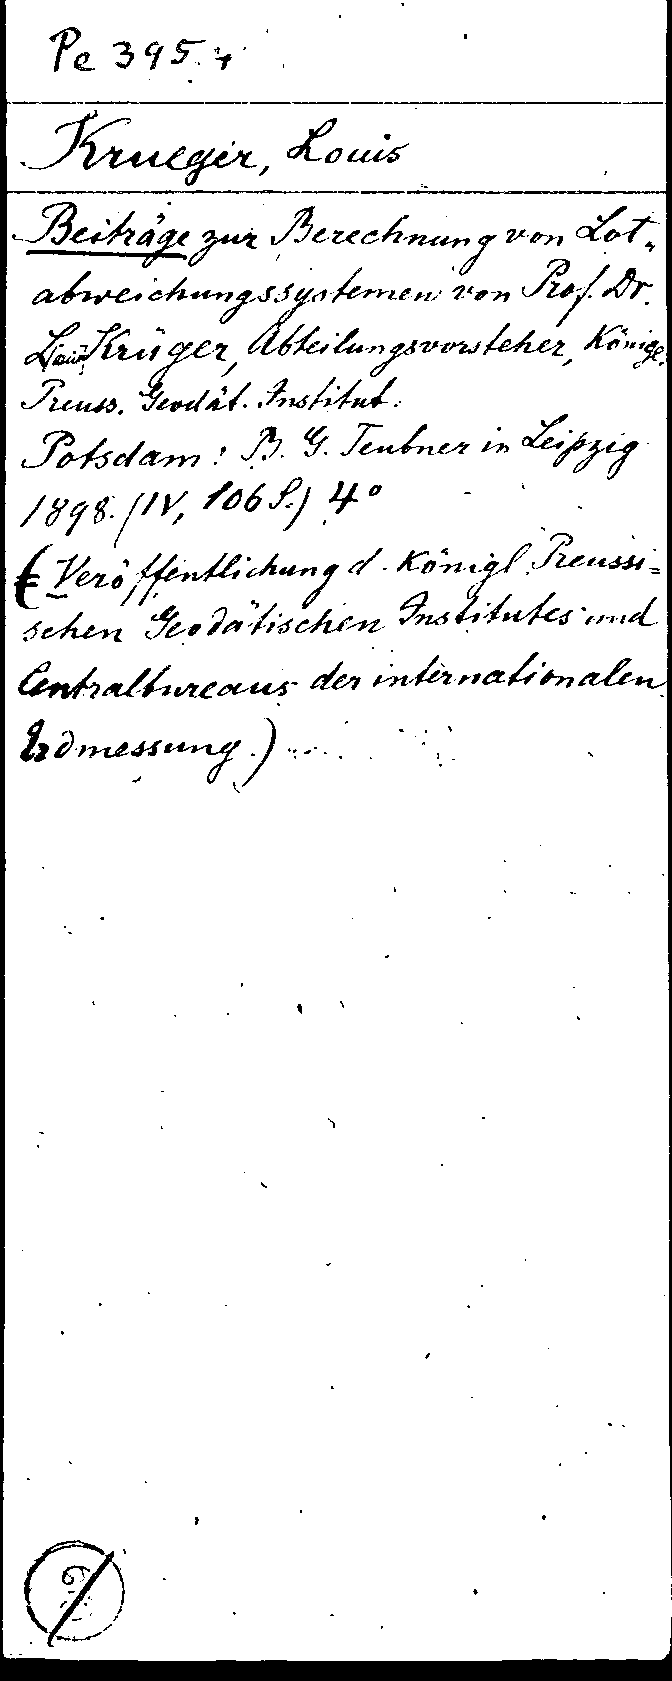 Pe 395. 4
Krueger, Louis
Beiträge zur Berechnung von Lot-
abweichungssystemen von Prof. Dr.
Louis Krüger, Abteilungsvorsteher, Königl.
Preuss. Geodät. Institut.
Potsdam: B. G. Teubner in Leipzig
1898. (IV, 106 S.) 4°
(= Veröffentlichung d. Königl. Preussi-
schen Geodätischen Institutes und
Centralbureaus der internationalen
Erdmessung.)